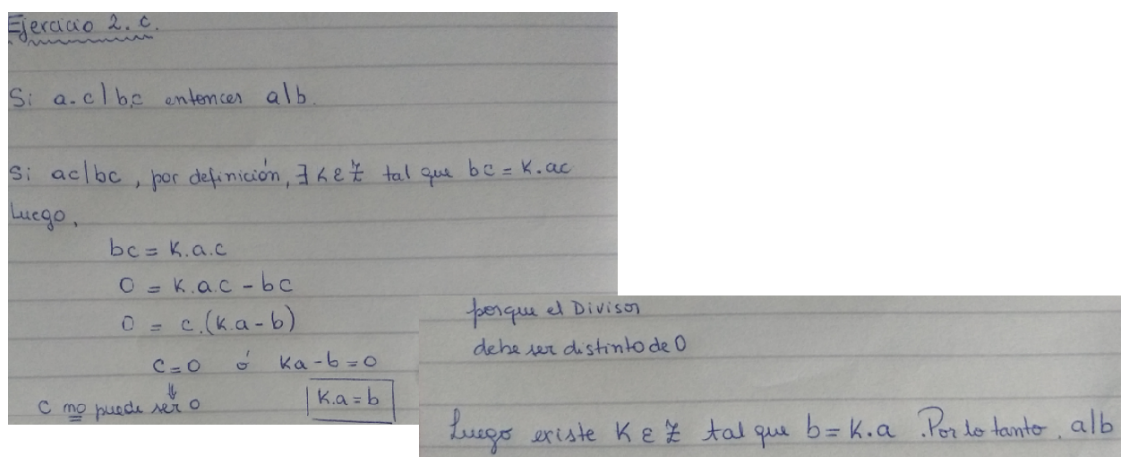 Ejercicio 2. c.
Si a.c|b.c entonces a|b.
Si ac|bc, por definición, ∃ K ε Z tal que bc = K.ac
Luego,
bc = K.a.c
0 = K.a.c - bc
0 = c.(K.a - b)
c=0 ó Ka-b=0
⇓
c no puede ser 0 K.a=b
porque el Divisor
debe ser distinto de 0
Luego existe K ε Z tal que b=K.a. Por lo tanto, a|b